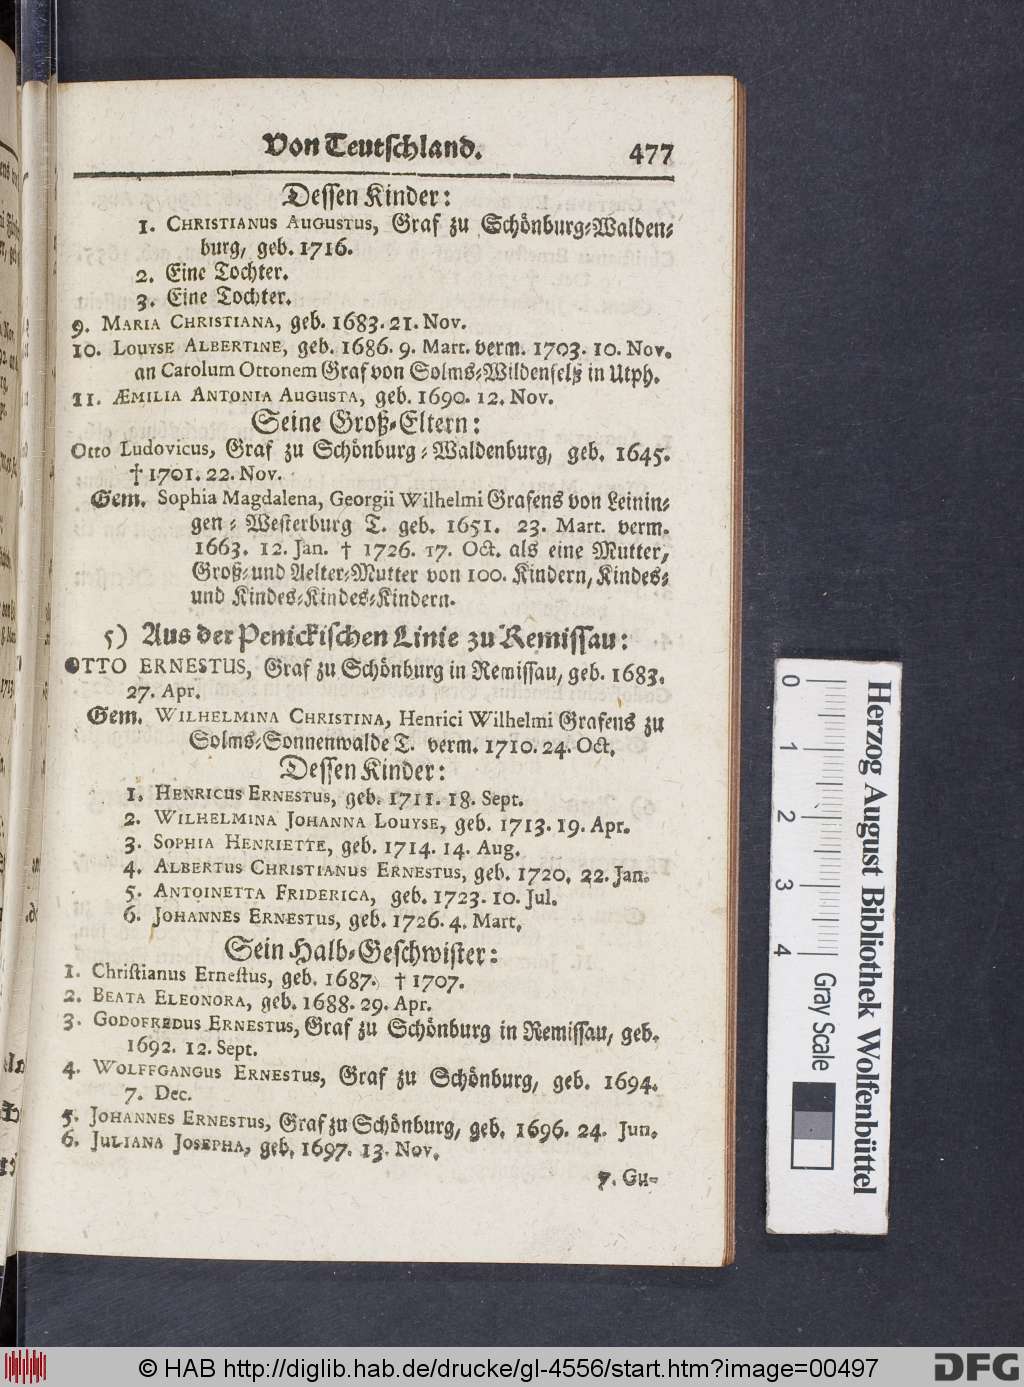 Von Teutschland. 477
Dessen Kinder:
1. CHRISTIANUS AUGUSTUS, Graf zu Schönburg-Walden-
burg, geb. 1716.
2. Eine Tochter.
3. Eine Tochter.
9. MARIA CHRISTIANA, geb. 1683. 21. Nov.
10. LOUYSE ALBERTINE, geb. 1686. 9. Mart. verm. 1703. 10. Nov.
an Carolum Ottonem Graf von Solms-Wildenfelß in Utph.
11. ÆMILIA ANTONIA AUGUSTA, geb. 1690. 12. Nov.
Seine Groß-Eltern:
Otto Ludovicus, Graf zu Schönburg-Waldenburg, geb. 1645.
† 1701. 22. Nov.
Gem. Sophia Magdalena, Georgii Wilhelmi Grafens von Leinin-
gen-Westerburg T. geb. 1651. 23. Mart. verm.
1663. 12. Jan. † 1726. 17. Oct. als eine Mutter,
Groß-und Aelter-Mutter von 100. Kindern, Kindes-
und Kindes-Kindes-Kindern.
5) Aus der Penickischen Linie zu Remissau:
OTTO ERNESTUS, Graf zu Schönburg in Remissau, geb. 1683.
27. Apr.
Gem. WILHELMINA CHRISTINA, Henrici Wilhelmi Grafens zu
Solms-Sonnenwalde T. verm. 1710. 24. Oct.
Dessen Kinder:
1. HENRICUS ERNESTUS, geb. 1711. 18. Sept.
2. WILHELMINA JOHANNA LOUYSE, geb. 1713. 19. Apr.
3. SOPHIA HENRIETTE, geb. 1714. 14. Aug.
4. ALBERTUS CHRISTIANUS ERNESTUS, geb. 1720. 22. Jan.
5. ANTOINETTA FRIDERICA, geb. 1723. 10. Jul.
6. JOHANNES ERNESTUS, geb. 1726. 4. Mart.
Sein Halb-Geschwister:
1. Christianus Ernestus, geb. 1687. † 1707.
2. BEATA ELEONORA, geb. 1688. 29. Apr.
3. GODOFREDUS ERNESTUS, Graf zu Schönburg in Remissau, geb.
1692. 12. Sept.
4. WOLFFGANGUS ERNESTUS, Graf zu Schönburg, geb. 1694.
7. Dec.
5. JOHANNES ERNESTUS, Graf zu Schönburg, geb. 1696. 24. Jun.
6. JULIANA JOSEPHA, geb. 1697. 13. Nov.
7. Gu-
0 1 2 3 4 Gray Scale
Herzog August Bibliothek Wolfenbüttel
© HAB http://diglib.hab.de/drucke/gl-4556/start.htm?image=00497
DFG